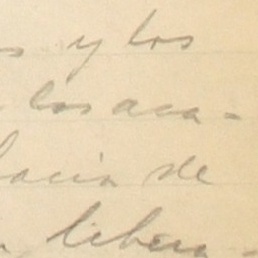 s y los
los aca-
hacia de
libera-